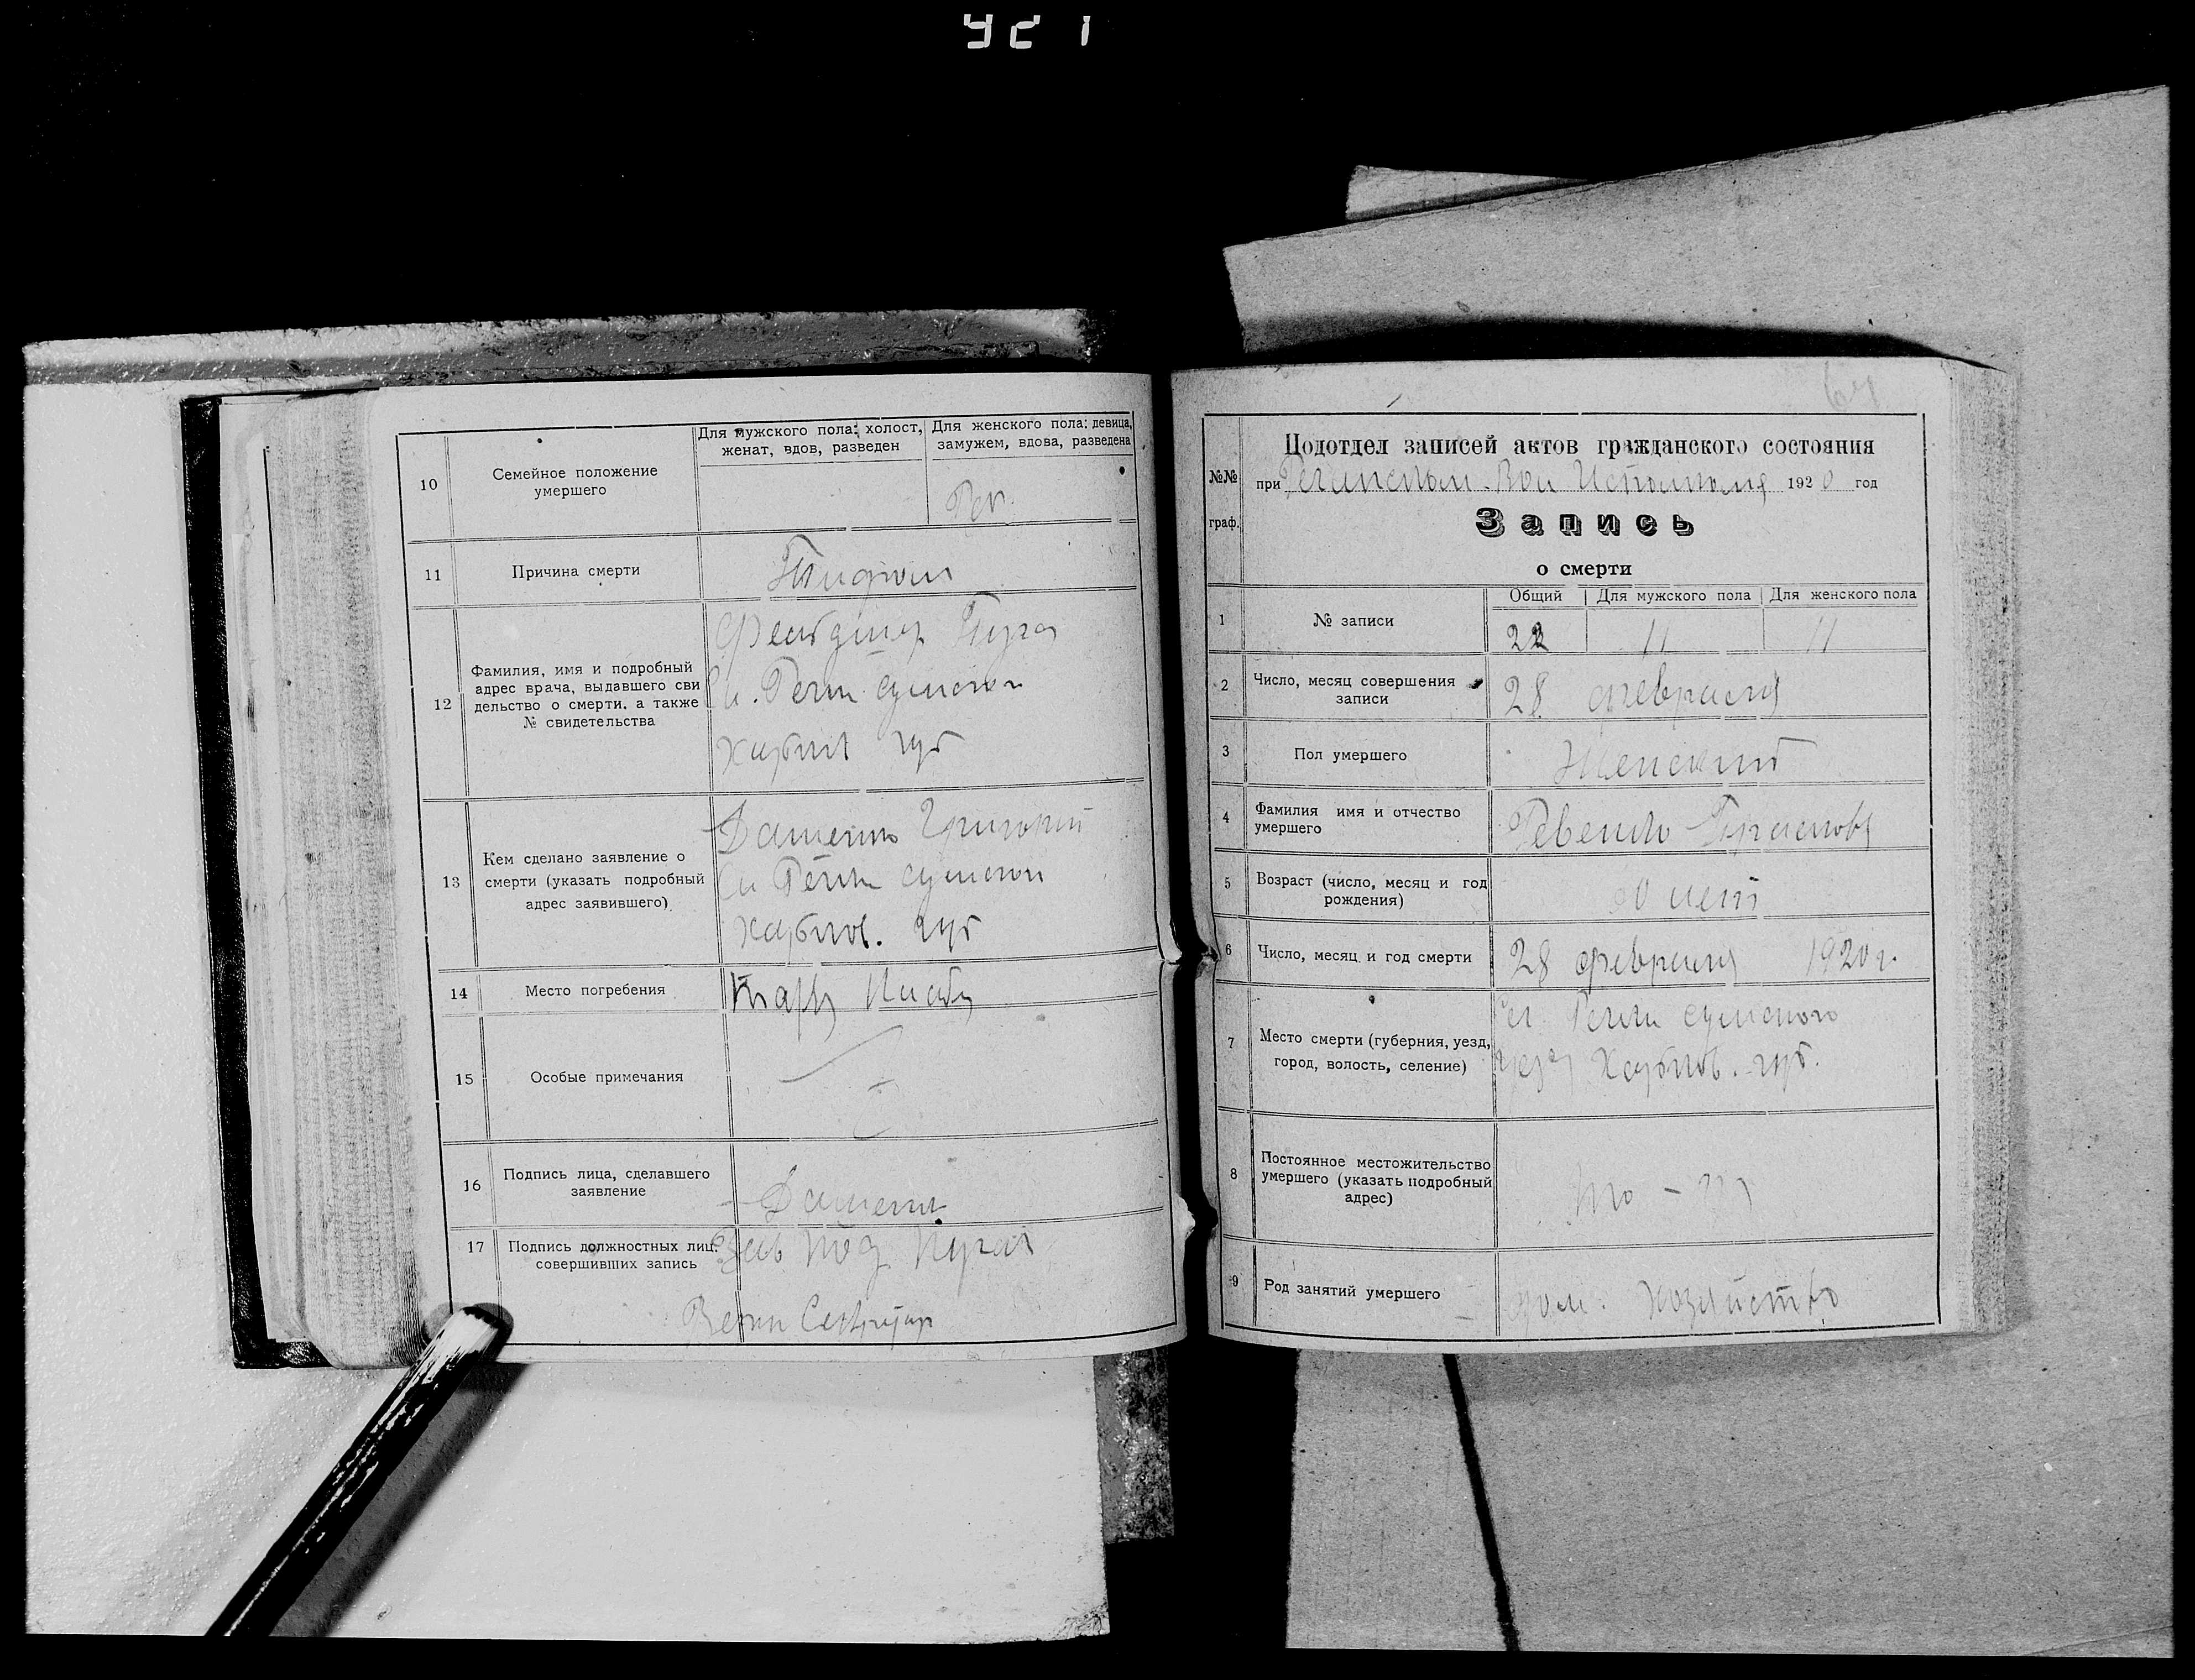 921
10
Семейное положение
умершего
Для мужского пола: холост,
женат, вдов, разведен
Для женского пола: девица,
замужем, вдова, разведена
11
Причина смерти
Тифом
12
Фамилия, имя и подробный
адрес врача, выдавшего сви
дельство о смерти, а также
№ свидетельства
Фельдшер
Речки Сумского
Харьков губ
13
Кем сделано заявление о
смерти (указать подробный
адрес заявившего)
Даценко Григорий
Речки Сумского
Харьков. губ
14
Место погребения
15
Особые примечания
16
Подпись лица, сделавшего
заявление
Даценко
17
Подпись должностных лиц,
совершивших запись
Зав Под
Секретарь
64
№№
граф.
Подотдел записей актов гражданского состояния
при Речанском Вол Исполкоме 1920 год
Запись
о смерти
1
№ записи
Общий
Для мужского пола
Для женского пола
22
11
11
2
Число, месяц совершения
записи
28 февраля
3
Пол умершего
Женский
4
Фамилия имя и отчество
умершего
Ревенко
5
Возраст (число, месяц и год
рождения)
лет
6
Число, месяц и год смерти
28 февраля 1920 г.
7
Место смерти (губерния, уезд,
город, волость, селение)
Речки Сумского
уезд Харьков. губ.
8
Постоянное местожительство
умершего (указать подробный
адрес)
9
Род занятий умершего
дом. хозяйство